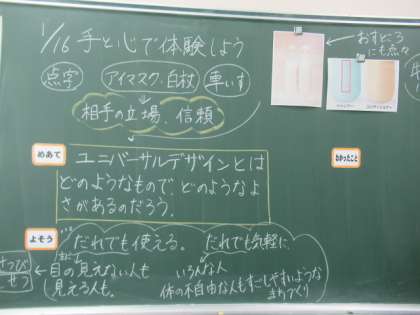 1/16 手と心で体験しよう
点字
アイマスク、白杖
車いす
相手の立場、信頼
おすところ
にも点々
シャンプー
コンディショナー
めあて
ユニバーサルデザインとは
どのようなもので、どのようなよ
さがあるのだろう。
わかったこと
よそう
だれでも使える。
だれでも気軽に
目の見えない人も
見える人も。
いろんな人
体の不自由な人もすごしやすいような
まちづくり